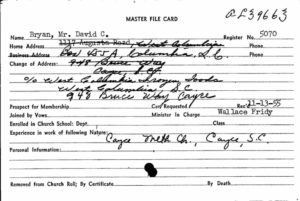 AL39663
MASTER FILE CARD
Name Bryan, Mr. David C. Register No. 5070
Home Address 1117 Augusta Road, West Columbia Phone
Business Address Box 65A, Columbia, S.C. Phone
Change of Address: 948 Bruce Way
Cayce, S.C.
c/o West Columbia Frozen Foods
West Columbia, S.C.
948 Bruce Way Cayce
Prospect for Membership Card Requested Rec'd 11-13-55
Joined by Vows Minister in Charge Wallace Fridy
Enrolled in Church School: Dept. Class
Experience in work of following Nature:
Cayce Meth Ch., Cayce, S.C.
Personal Information:
Removed from Church Roll; By Certificate By Death